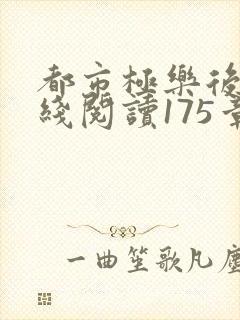 都市極樂後
綫閱讀175章
一曲笙歌凡塵